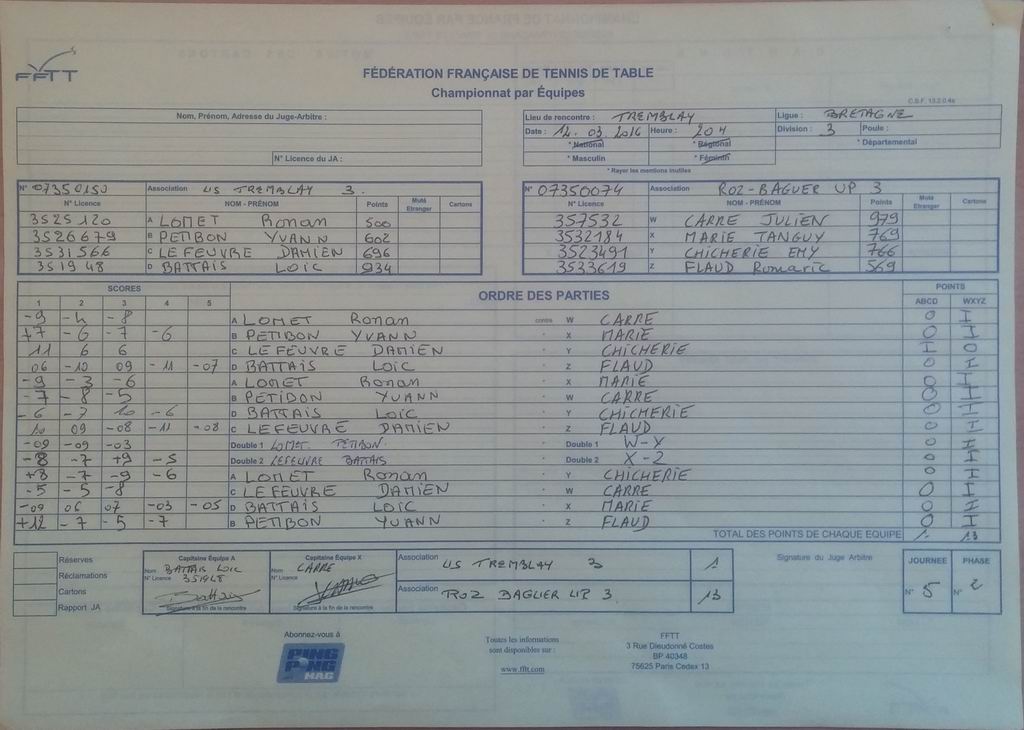 FFTT
FÉDÉRATION FRANÇAISE DE TENNIS DE TABLE
Championnat par Équipes
C.S.F. 13.2.0.4a
Nom, Prénom, Adresse du Juge-Arbitre :
N° Licence du JA :
Lieu de rencontre : TREMBLAY Ligue : BRETAGNE
Date : 12.03.2016 Heure : 20H Division : 3 Poule :
* National * Régional * Départemental
* Masculin * Féminin
* Rayer les mentions inutiles
N° 07350150 Association US TREMBLAY 3.
N° Licence NOM - PRÉNOM Points Muté Etranger Cartons
3525120 A LOMET Ronan 500
3526679 B PETIBON YVANN 602
3531566 C LE FEUVRE DAMIEN 696
351948 D BATTAIS LOIC 934
N° 07350074 Association ROZ-BAGUER UP 3
N° Licence NOM - PRÉNOM Points Muté Etranger Cartons
357532 W CARRE JULIEN 979
3532184 X MARIE TANGUY 769
3523491 Y CHICHERIE EMY 766
3533619 Z FLAUD Romaric 569
SCORES ORDRE DES PARTIES POINTS
1 2 3 4 5 ABCD WXYZ
-9 -4 -8 A LOMET Ronan contre W CARRE 0 I
+7 -6 -7 -6 B PETIBON YVANN " X MARIE 0 I
11 6 6 C LE FEUVRE DAMIEN " Y CHICHERIE I 0
06 -10 09 -11 -07 D BATTAIS LOIC " Z FLAUD 0 I
-9 -3 -6 A LOMET Ronan " X MARIE 0 I
-7 -8 -5 B PETIDON YVANN " W CARRE 0 I
-6 -7 10 -6 D BATTAIS LOIC " Y CHICHERIE 0 I
10 09 -08 -11 -08 C LEFEUVRE DAMIEN " Z FLAUD 0 I
-09 -09 -03 Double 1 LOMET PETIBON Double 1 W-Y 0 I
-8 -7 +9 -5 Double 2 LEFEUVRE BATTAIS Double 2 X-Z 0 I
+8 -7 -9 -6 A LOMET Ronan " Y CHICHERIE 0 I
-5 -5 -8 C LE FEUVRE DAMIEN " W CARRE 0 I
-09 06 07 -03 -05 D BATTAIS LOIC " X MARIE 0 I
+12 -7 -5 -7 B PETIBON YVANN " Z FLAUD 0 I
TOTAL DES POINTS DE CHAQUE EQUIPE 1 13
Réserves
Réclamations
Cartons
Rapport JA
Capitaine Équipe A
Nom BATTAIS LOIC
N° Licence 351948
Battais
Signature à la fin de la rencontre
Capitaine Équipe X
Nom CARRE
N° Licence
Signature à la fin de la rencontre
Association US TREMBLAY 3 1
Association ROZ BAGUER UP 3 13
Signature du Juge Arbitre
JOURNEE PHASE
N° 5 N° 2
Abonnez-vous à
PING PONG MAG
Toutes les informations
sont disponibles sur :
www.fftt.com
FFTT
3 Rue Dieudonné Costes
BP 40348
75625 Paris Cedex 13